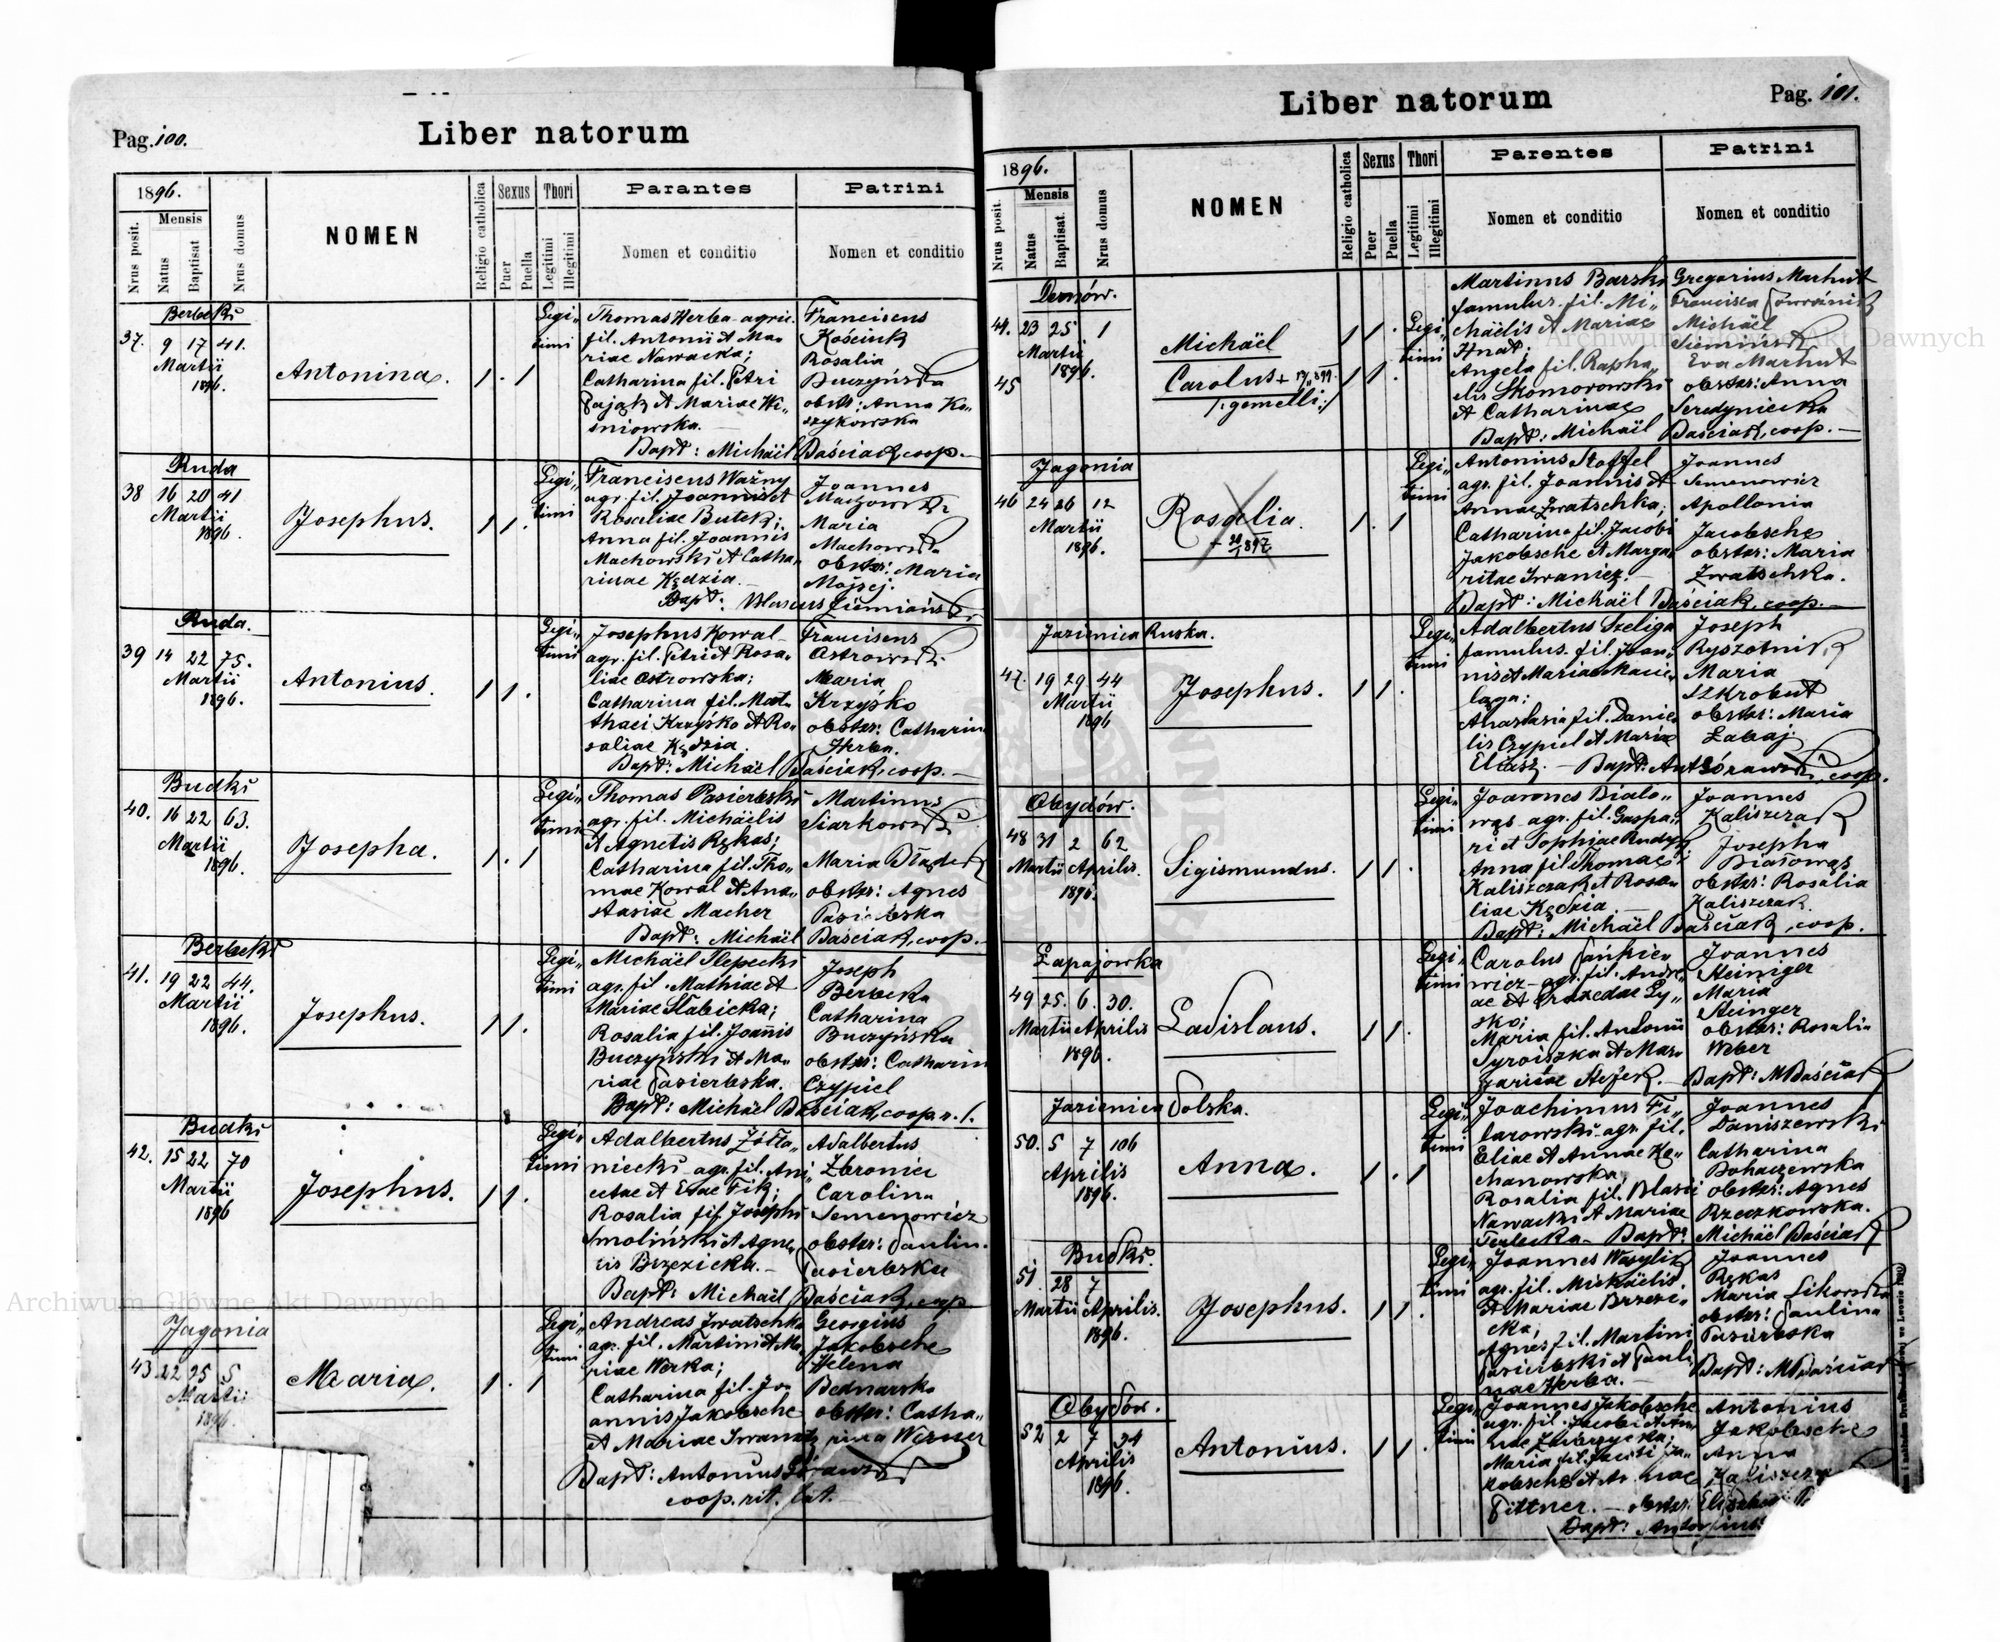 Pag. 100.
Liber natorum
1896.
Nrus posit.
Mensis
Natus
Baptisat
Nrus domus
NOMEN
Religio catholica
Sexus
Puer
Puella
Thori
Legitimi
Illegitimi
Parantes
Nomen et conditio
Patrini
Nomen et conditio
Berbeki
37. 9 17 41.
Martii
1896.
Antonina.
1 . 1
Legi„
timi
Thomas Herba agric.
fil. Antonii et Ma„
riae Nawacka;
Catharina fil. Petri
Pająk et Mariae Wi„
śniowska.
Franciscus
Kościuk
Rosalia
Buczyńska
obstr: Anna Ko„
szykowska
Bapt: Michaël Baściak, coop.
Ruda
38 16 20 41
Martii
1896.
Josephus.
1 1 .
Legi„
timi
Franciscus Ważny
agr. fil. Joannis et
Rosaliae Butek;
Anna fil. Joannis
Machowski et Catha„
rinae Kędzia.
Joannes
Maria
Machowska
obstr: Maria
Mojsej.
Bapt:
Ruda.
39 14 22 75.
Martii
1896.
Antonius.
1 1 .
Legi„
timi
Josephus Kowal
agr. fil. Petri et Rosa„
liae Ostrowska;
Catharina fil. Mat„
thaei Krzyśko et Ro„
saliae Kędzia.
Franciscus
Ostrowski
Maria
Krzyśko
obstr: Catharin
Herba.
Bapt: Michaël Baściak, coop.
Budki
40. 16 22 63.
Martii
1896.
Josepha.
1 . 1
Legi„
timi
Thomas Pasierbski
agr. fil. Michaëlis
et Agnetis Rękas;
Catharina fil. Tho„
mae Kowal et Ana„
stasiae Macher
Martinus
Siarkowski
Maria
obstr: Agnes
Pasierbska
Bapt: Michaël Baściak, coop.
Berbeki
41. 19 22 44.
Martii
1896.
Josephus.
1 1 .
Legi„
timi
Michaël Slepecki
agr. fil. Mathiae et
Mariae Slabicka;
Rosalia fil. Joannis
Buczyński et Ma„
riae Pasierbska.
Joseph
Berbeka
Catharina
Buczyńska
obstr: Catharin
Czypiel
Bapt: Michaël Baściak, coop. r. l.
Budki
42. 15 22 70
Martii
1896
Josephus.
1 1 .
Legi„
timi
Adalbertus Żółta„
niecki agr. fil. Ani„
cetae et Evae Fik;
Rosalia fil. Josephi
Smoliński et Agne„
tis Brzezicka.
Adalbertus
Zbroniec
Carolina
Semenowicz
obstr: Paulin.
Pasierbska
Bapt: Michaël Baściak, coop
Jagonia
43. 22 25 5
Martii
1896.
Maria.
1 . 1
Legi„
timi
Andreas Zwatschka
agr. fil. Martini et Ma„
riae Werka;
Catharina fil. Jo„
annis Jakobsche
et Mariae Iwanetz
Georgius
Jakobsche
Helena
Bednarska
obstr: Catha„
rina Werner
Bapt: Antonius
coop. rit. lat.
Liber natorum
Pag. 101.
1896.
Nrus posit.
Mensis
Natus
Baptisat
Nrus domus
NOMEN
Religio catholica
Sexus
Puer
Puella
Thori
Legitimi
Illegitimi
Parentes
Nomen et conditio
Patrini
Nomen et conditio
Dernów.
44. 23 25 1
Martii
1896.
45
Michaël
Carolus
/: gemelli :/
1 1 .
1 1 .
Legi„
timi
Martinus Barski
famulus. fil. Mi„
chaëlis et Mariae
Hnat;
Angela fil. Rapha„
elis Skomorowski
et Catharinae
Gregorius Marhut
Francisca
Michaël
Eva Marhut
obstr: Anna
Seredyniecka
Bapt: Michaël Baściak, coop.
Jagonia
46 24 26 12
Martii
1896.
Rosalia.
1 . 1
Legi„
timi
Antonius Stoffel
agr. fil. Joannis et
Annae Zwatschka;
Catharina fil. Jacobi
Jakobsche et Marga„
ritae Iwaniez.
Joannes
Semenowicz
Apollonia
Jacobsche
obstr: Maria
Zwatschka.
Bapt: Michaël Baściak, coop.
Jazienica Ruska.
47. 19 29 44
Martii
1896
Josephus.
1 1 .
Legi„
timi
Adalbertus Szeliga
famulus. fil. Joan„
nis et Mariae Macie„
laga;
Anastasia fil. Danie„
lis Czypiel et Mariae
Eliasz.
Joseph
Ryszotnik
Maria
Szkrobut
obstr: Maria
Labaj.
Bapt: Ant. Górawski, coop.
Obydów.
48 31 2 62
Martii Aprilis.
1896.
Sigismundus.
1 1 .
Legi„
timi
Joannes Biało„
wąs agr. fil. Gaspa„
ri et Sophiae Rudyk;
Anna fil. Thomae
Kaliszczak et Rosa„
liae Kędzia.
Joannes
Kaliszczak
Josepha
Białowąs
obstr: Rosalia
Kaliszczak.
Bapt: Michaël Baściak, coop.
Łapajówka
49 25. 6. 30.
Martii Aprilis
1896.
Ladislaus.
1 1 .
Legi„
timi
Carolus Pańkie„
wicz agr. fil. Andre„
ae et Praxedae Ły„
sko;
Maria fil. Antonii
Syroiszka et Mar„
garitae Stefek.
Joannes
Steiniger
Maria
Steinger
obstr: Rosalia
Weber
Bapt: M Baściak
Jazienica Polska.
50. 5 7 106
Aprilis
1896.
Anna.
1 . 1
Legi„
timi
Joachimus Fi„
larowski agr. fil.
Eliae et Annae Ko„
chanowska;
Rosalia fil. Blasii
Nawacki et Mariae
Terlecka
Joannes
Daniszewski
Catharina
Bohaczewska
obstr: Agnes
Rzeczkowska.
Bapt: Michaël Baściak
Budki.
51 28 7
Martii Aprilis.
1896.
Josephus.
1 1 .
Legi„
timi
Joannes Wasylik
agr. fil. Michaëlis.
et Mariae Brzezi„
cka;
Agnes fil. Martini
Pasierbski et Pauli„
nae Herba.
Joannes
Rękas
Maria Sikorska
obstr: Paulina
Pasierbska
Bapt: M Baściak
Obydów.
52 2 7 34
Aprilis
1896.
Antonius.
1 1 .
Legi„
timi
Joannes Jakobsche
agr. fil. Jacobi et An„
nae
Maria fil. Jacobi Ja„
kobsche et An„nae
Pittner.
Antonius
Jakobsche
Anna
obstr:
Bapt: Antonius
Archiwum Główne Akt Dawnych
Archiwum Główne Akt Dawnych